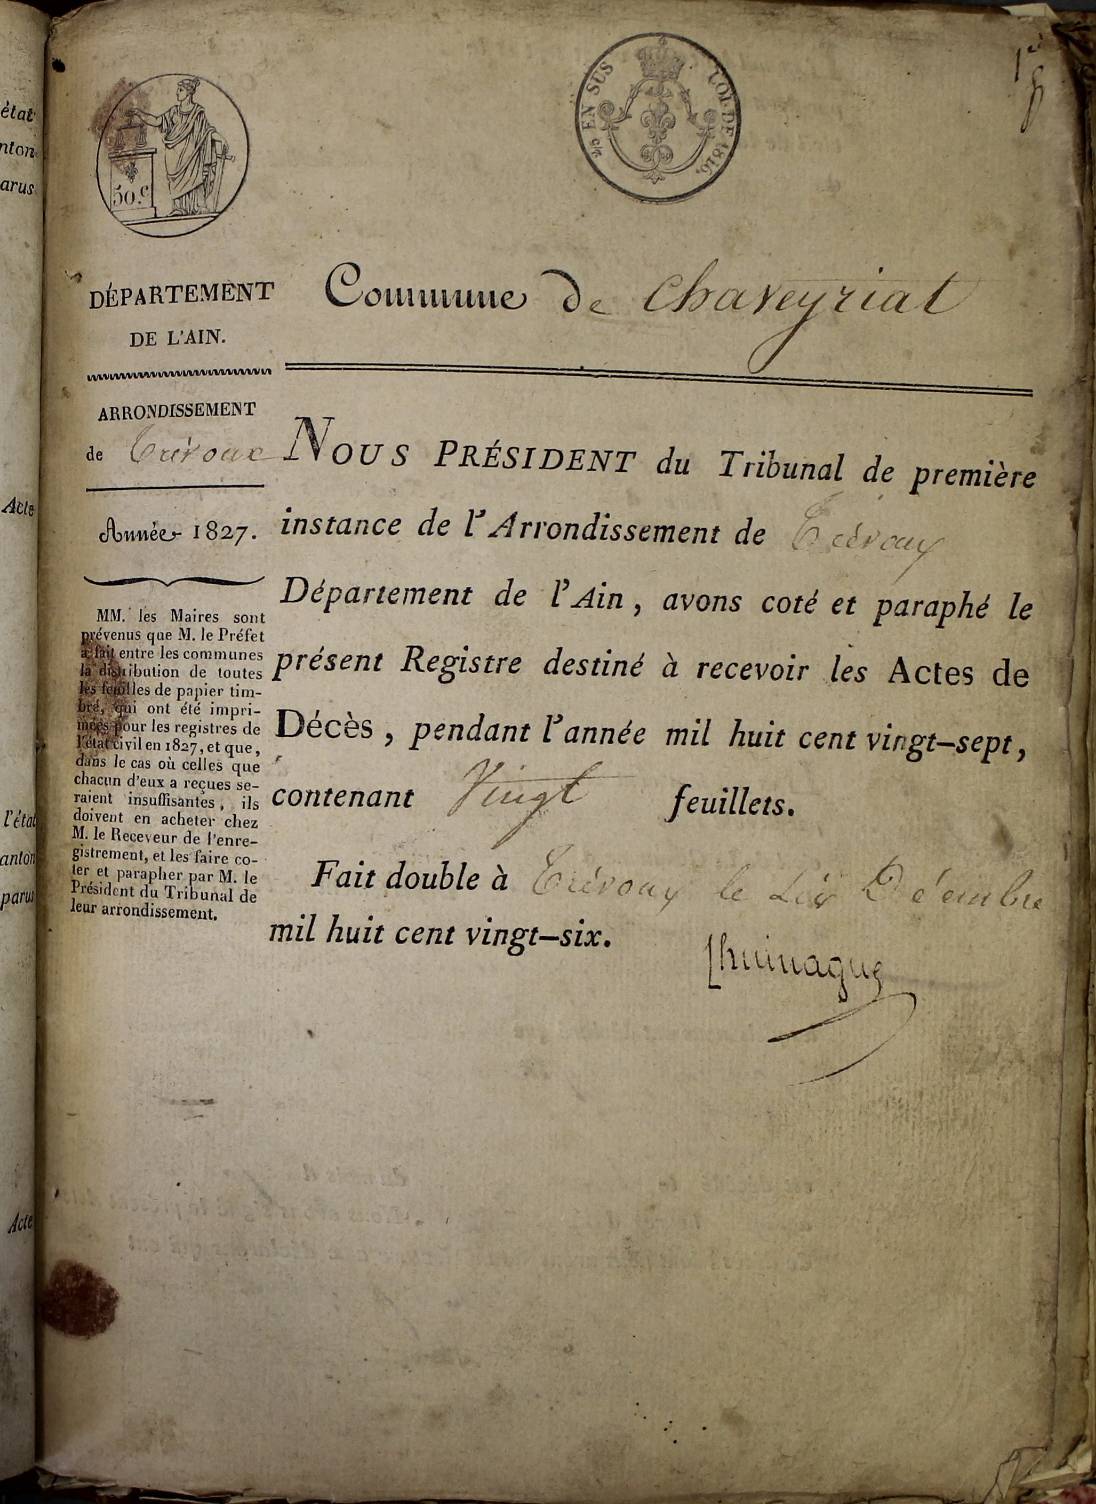 état
nton
arus
Acte
l'état
anton
parus
Acte
50 c
EN SUS LOI DE 1816.
1er
DÉPARTEMENT
DE L'AIN.
Commune de Chaveyriat
ARRONDISSEMENT
de Trévoux
Année 1827.
MM. les Maires sont
prévenus que M. le Préfet
a fait entre les communes
la distribution de toutes
les feuilles de papier tim-
bré, qui ont été impri-
mées pour les registres de
l'état civil en 1827, et que,
dans le cas où celles que
chacun d'eux a reçues se-
raient insuffisantes, ils
doivent en acheter chez
M. le Receveur de l'enre-
gistrement, et les faire co-
ter et parapher par M. le
Président du Tribunal de
leur arrondissement.
NOUS PRÉSIDENT du Tribunal de première
instance de l'Arrondissement de Trévoux
Département de l'Ain, avons coté et paraphé le
présent Registre destiné à recevoir les Actes de
Décès, pendant l'année mil huit cent vingt-sept,
contenant Vingt feuillets.
Fait double à Trévoux le Dix Décembre
mil huit cent vingt-six.